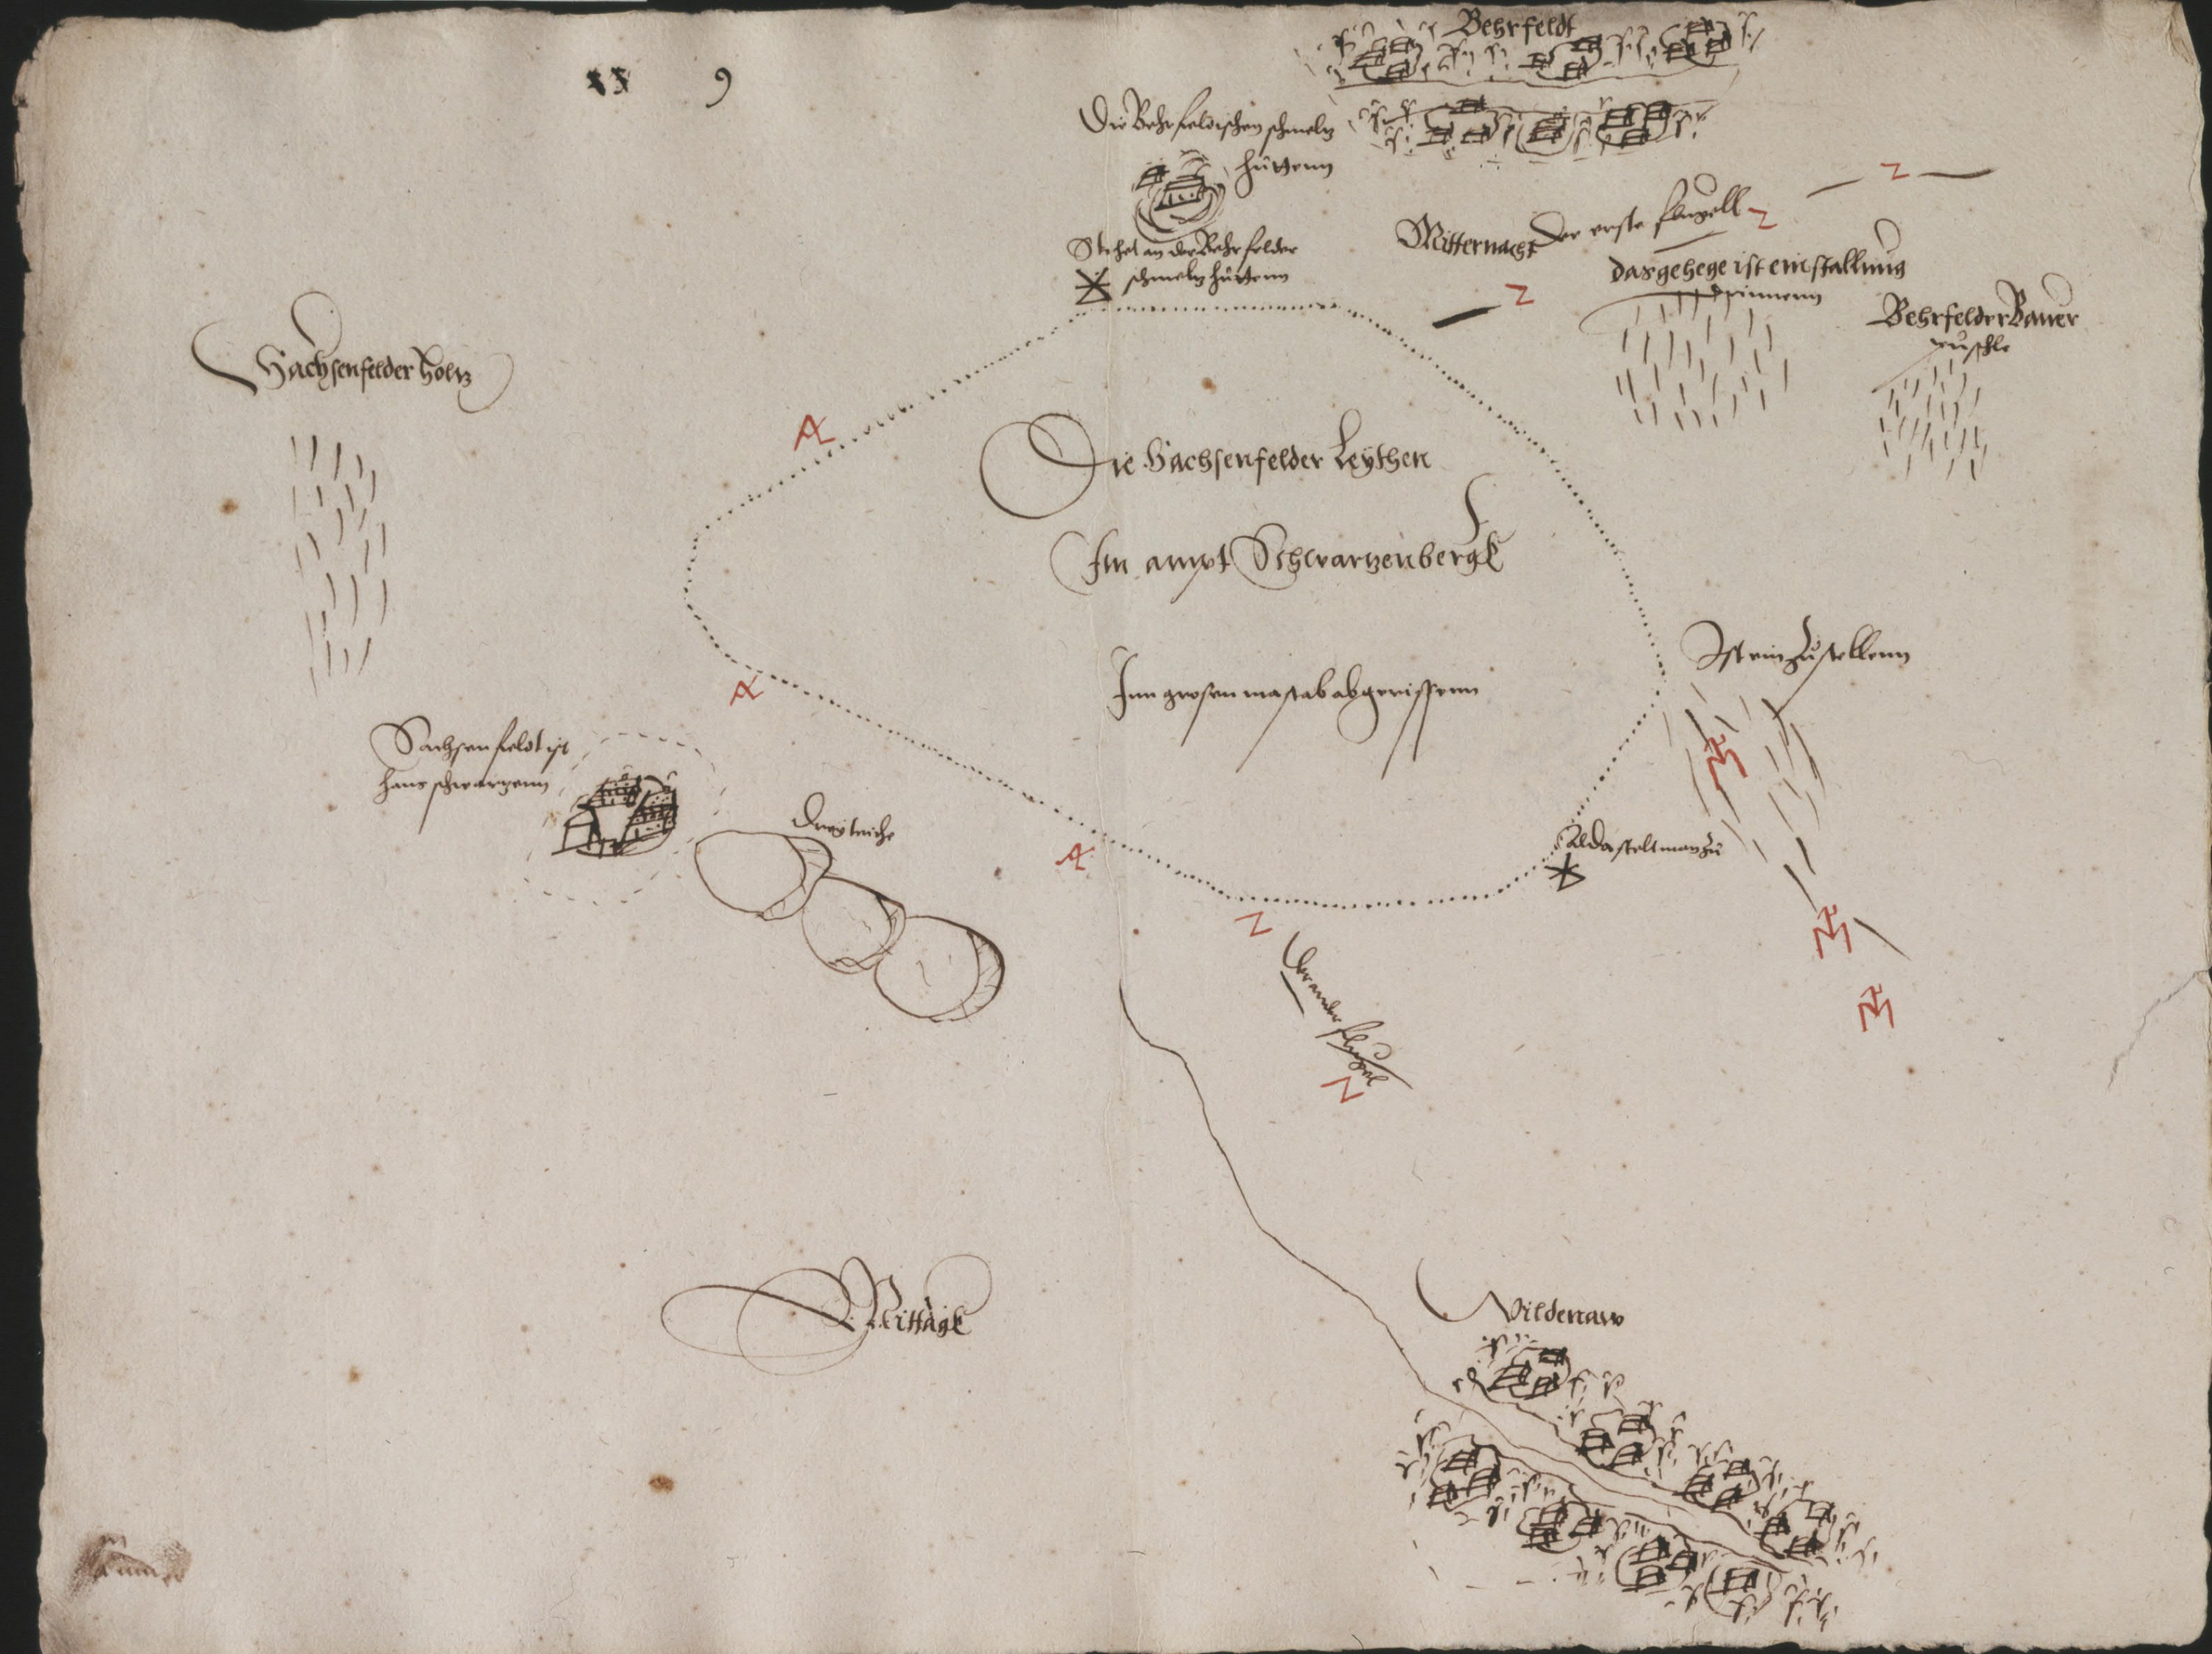 9
Behrfeldt
Die Behrfeldischen schmeltz
hüttenn
Stehet an der Behrfelder
schmeltzhüttenn
Mitternacht
Der erste flugell
Z
Z
Z
das gehege ist ein stallung
drinnenn
Behrfelder Bauer
puschle
Sachsenfelder holtz
A
Die Sachsenfelder Leythen
Im ampt Schwartzenbergk
Inn grosen mastab abgerissenn
Ist ein Zustellenn
A
Sachsenfeldt ist
hans schwartzenn
Drey teiche
A
Alda stelt man zu
Z
Der ander flugel
Z
Mittagk
Wildenaw